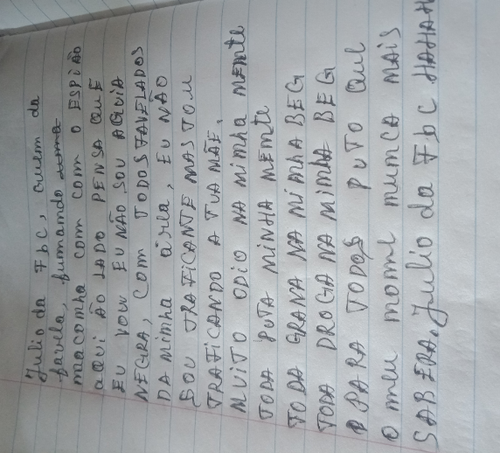 Julio da Fbc, cuem da
favela, fumando
macomha com com o ESPIÃO
aqui ÃO LADO PENSA QUE
EU VOU EU NÃO SOU AGUIA
NEGRA, COM TODOS FAVELADOS
DA Mimha área, EU NÃO
SOU TRAFICANTE MAS TOU
TRAFICANDO A TUA MÃE.
MUITO ODIO NA Mimha MEMTE
TODA PUTA MINHA MEMTE
TODA GRANA NA MiMHA BEG
TODA DROGA NA MiMHA BEG
PARA TODOS PUTO QUE
O MEU MOME MUMCA MAIS
SABERA. Julio da Fbc HAHAH